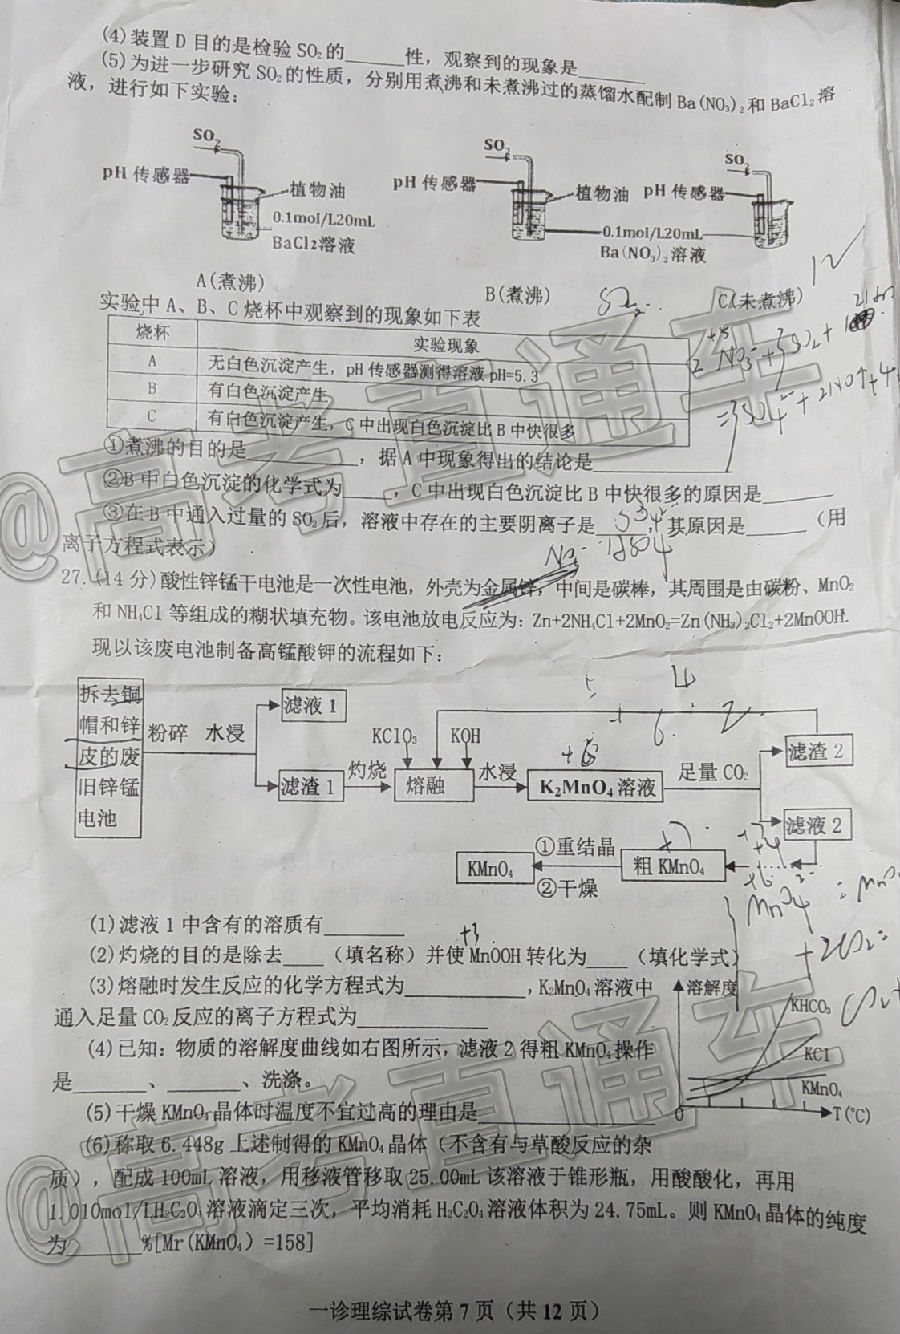 (4)装置D目的是检验SO₂的______性，观察到的现象是______
(5)为进一步研究SO₂的性质，分别用煮沸和未煮沸过的蒸馏水配制Ba(NO₃)₂和BaCl₂溶
液，进行如下实验：
SO₂ SO₂ SO₂
pH传感器 植物油 pH传感器 植物油 pH传感器
0.1mol/L20mL 0.1mol/L20mL
BaCl2溶液 Ba(NO₃)₂溶液
A(煮沸) B(煮沸) C(未煮沸)
实验中A、B、C烧杯中观察到的现象如下表
烧杯 实验现象
A 无白色沉淀产生，pH传感器测得溶液pH=5.3
B 有白色沉淀产生
C 有白色沉淀产生，C中出现白色沉淀比B中快很多
①煮沸的目的是__________，据A中现象得出的结论是__________
②B中白色沉淀的化学式为____，C中出现白色沉淀比B中快很多的原因是______
③在B中通入过量的SO₂后，溶液中存在的主要阴离子是______，其原因是______（用
离子方程式表示）
27.(14分)酸性锌锰干电池是一次性电池，外壳为金属锌，中间是碳棒，其周围是由碳粉、MnO₂
和NH₄Cl等组成的糊状填充物。该电池放电反应为：Zn+2NH₄Cl+2MnO₂=Zn(NH₃)₂Cl₂+2MnOOH.
现以该废电池制备高锰酸钾的流程如下：
拆去铜
帽和锌
皮的废
旧锌锰
电池
粉碎 水浸
滤液1
滤渣1
灼烧
KClO₃ KOH
熔融
水浸
K₂MnO₄溶液
足量CO₂
滤渣2
滤液2
粗KMnO₄
①重结晶
②干燥
KMnO₄
(1)滤液1中含有的溶质有________
(2)灼烧的目的是除去____（填名称）并使MnOOH转化为____（填化学式）
(3)熔融时发生反应的化学方程式为____________，K₂MnO₄溶液中
通入足量CO₂反应的离子方程式为____________
(4)已知：物质的溶解度曲线如右图所示，滤液2得粗KMnO₄操作
是______、______、洗涤。
(5)干燥KMnO₄晶体时温度不宜过高的理由是______________
溶解度
KHCO₃
KCl
KMnO₄
0 T(℃)
(6)称取6.448g上述制得的KMnO₄晶体（不含有与草酸反应的杂
质），配成100mL溶液，用移液管移取25.00mL该溶液于锥形瓶，用酸酸化，再用
1.010mol/LH₂C₂O₄溶液滴定三次，平均消耗H₂C₂O₄溶液体积为24.75mL。则KMnO₄晶体的纯度
为______%[Mr(KMnO₄)=158]
一诊理综试卷第7页（共12页）
@高考直通车
@高考直通车